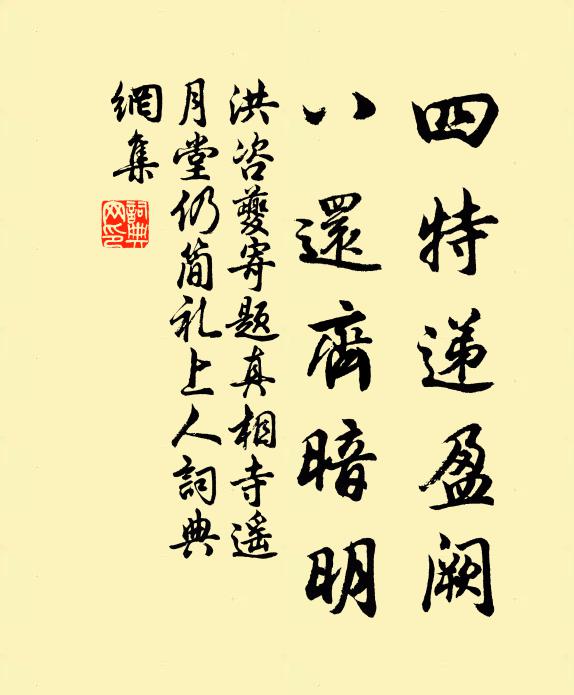 四特递盈阙
八還齊暗明
洪咨夔寄题真相寺遥
月堂仍简礼上人詞典
網集
詞典
网印